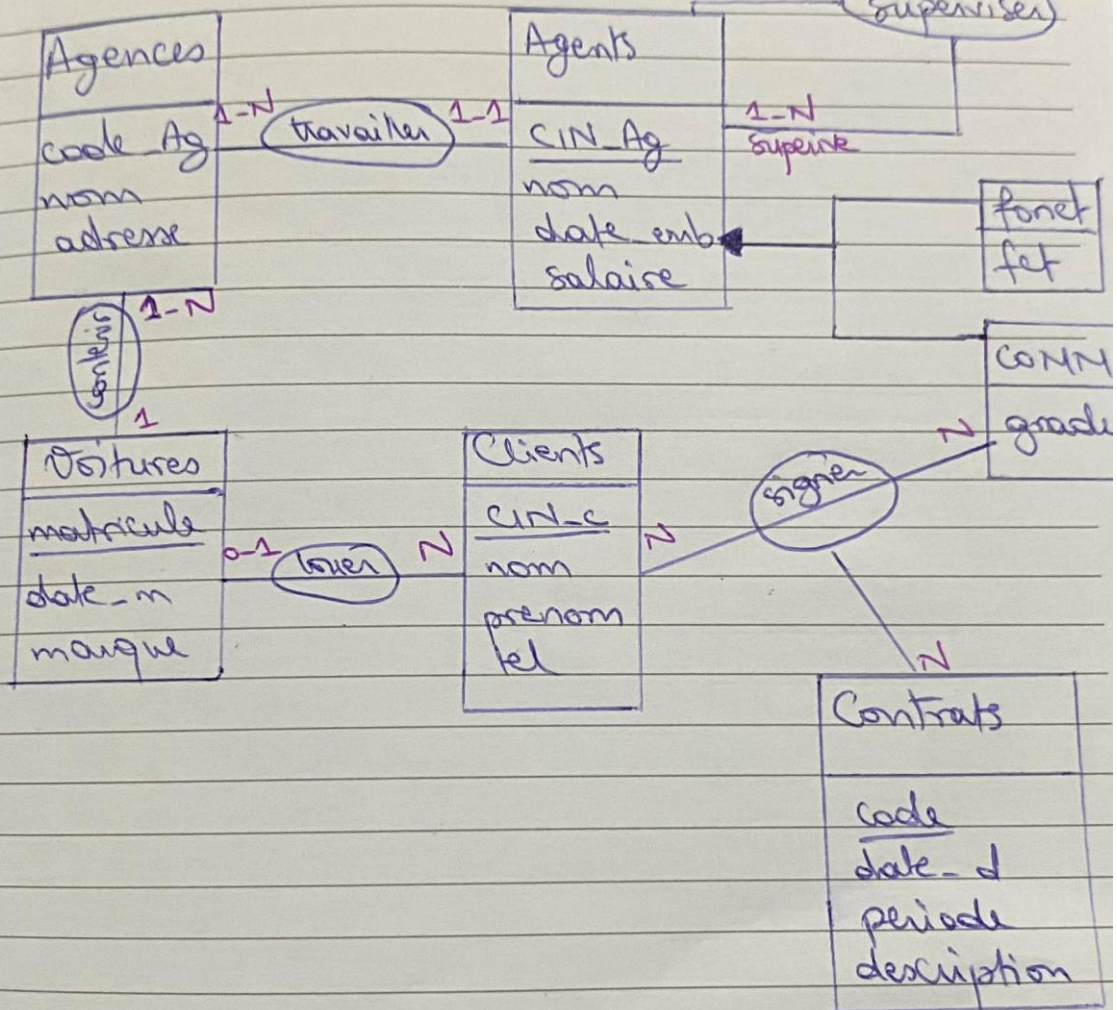 superviser
Agences
code_Ag
nom
adresse
1-N
travailler
1-1
Agents
CIN_Ag
nom
date_emb
salaire
1-N
fonct
fct
COMM
grade
1-N
1
Voitures
matricule
date_m
marque
0-1
louer
N
Clients
CIN_c
nom
prenom
tel
N
signer
N
N
Contrats
code
date_d
periode
description